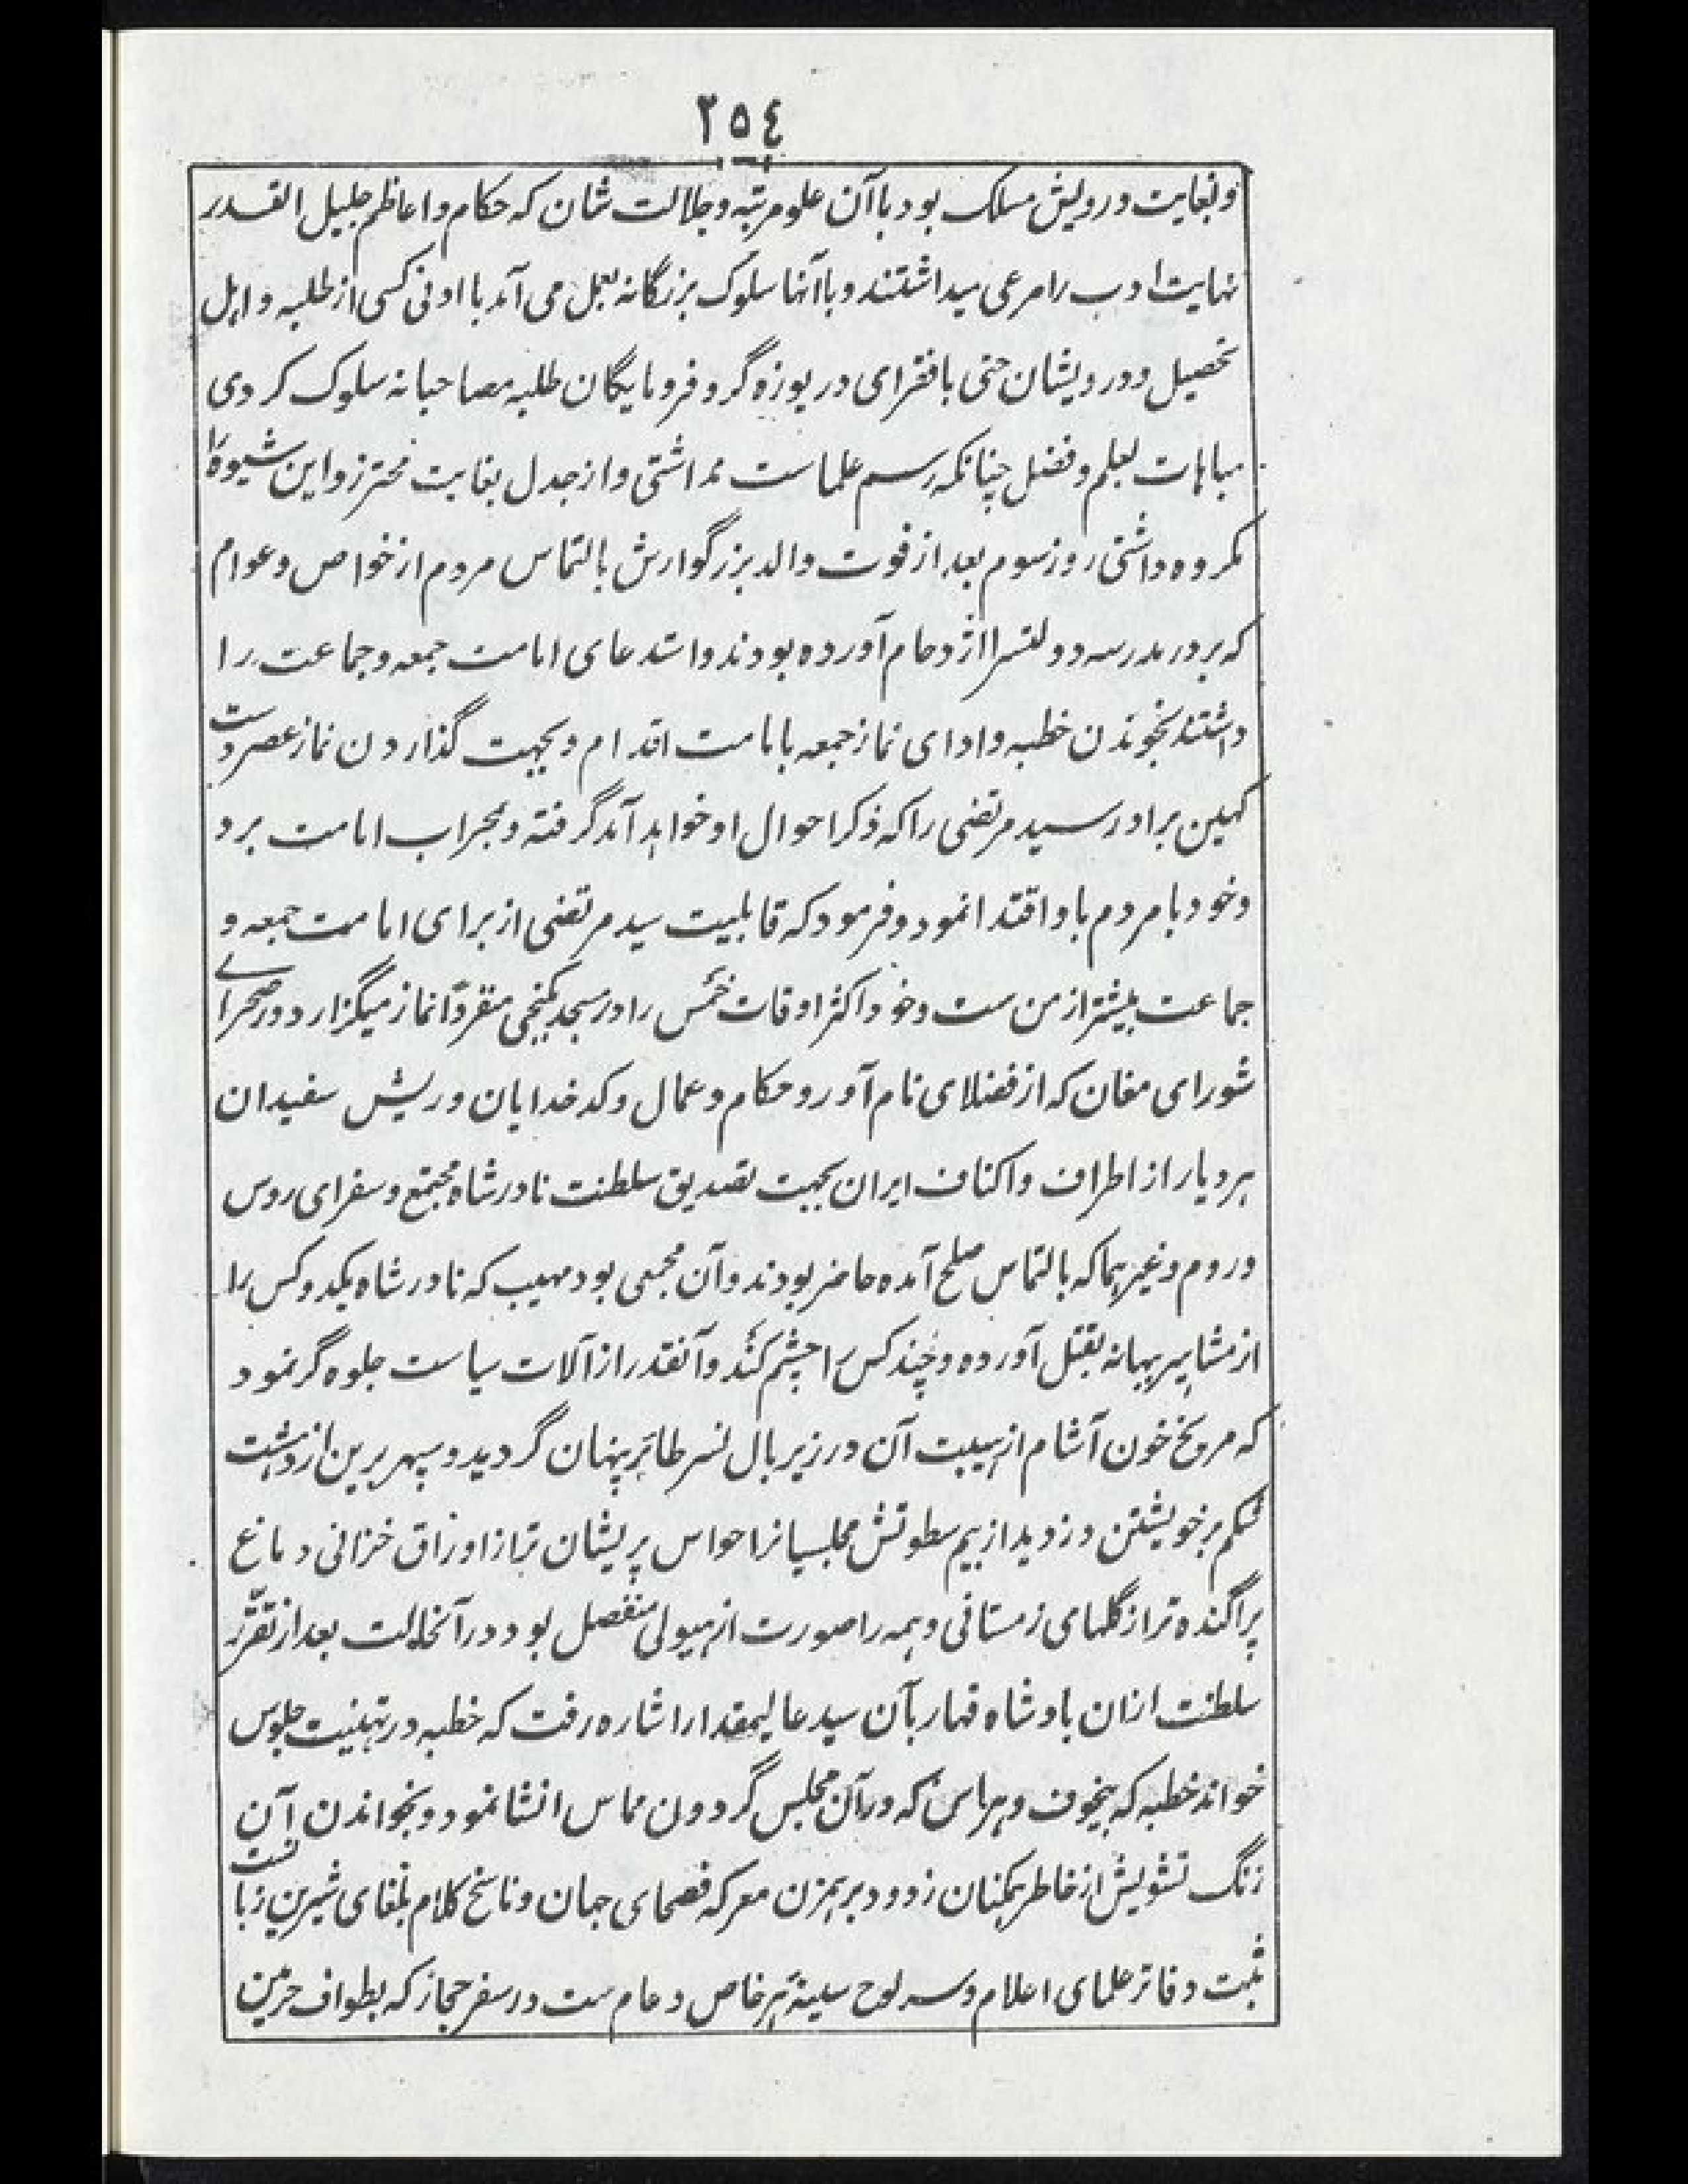 ٢٥٤
و بغایت درویش مسلک بود باآن علو مرتبه و جلالت شان که حکام و اعاظم جلیل القدر
نهایت ادب را مرعی میداشتند و باآنها سلوک بزرگانه بعمل می آمد با ادنی کسی از طلبه و اهل
تحصیل و درویشان حتی با فقرای دریوزه گر و فرومایگان طلبه مصاحبانه سلوک کردی
مباهات بعلم و فضل چنانکه رسم علماست نداشتی و از جدل بغایت محترز و این شیوه را
مکروه داشتی روز سوم بعد از فوت والد بزرگوارش بالتماس مردم از خواص و عوام
که بر در مدرسه و دولتسرا ازدحام آورده بودند و استدعای امامت جمعه و جماعت را
داشتند بخوندن خطبه و ادای نماز جمعه با امامت اقدام و بجهت گذاردن نماز عصر دست
کهین برادر سید مرتضی را که ذکر احوال او خواهد آمد گرفته و بمحراب امامت برد
و خود با مردم باو اقتدا نمود و فرمود که قابلیت سید مرتضی از برای امامت جمعه و
جماعت بیشتر از من ست و خود اکثر اوقات خمس را در مسجد بکنجی منفرداً نماز میگزارد و در صحرای
شورای مغان که از فضلای نام آور و حکام و عمال و کدخدایان و ریش سفیدان
هر دیار از اطراف و اکناف ایران بجهت تصدیق سلطنت نادرشاه مجتمع و سفرای روس
و روم و غیرهما که بالتماس صلح آمده حاضر بودند و آن مجمعی بود مهیب که نادرشاه یکدو کس را
از مشاهیر ببهانه بقتل آورده و چند کس را چشم کَند و آنقدر از آلات سیاست جلوه گر نمود
که مریخ خون آشام از هیبت آن در زیر بال نسر طائر پنهان گردید و سپهر برین از دهشت
شکم بر خویشتن دزدید از بیم سطوتش مجلسیانرا حواس پریشان تر از اوراق خزانی و دماغ
پراگنده تر از گلهای زمستانی و همه را صورت از هیولی منفصل بود در آنحالت بعد از تقرّر
سلطنت ازان بادشاه قهار بآن سید عالیمقدار اشاره رفت که خطبه در تهنیت جلوس
خواند خطبه که بیخوف و هراس که در آن مجلس گردون مماس انشا نمود و بخواندن آن
زنگ تشویش از خاطر همکنان زدود برهمزن معرکه فصحای جهان و ناسخ کلام بلغای شیرین زبانست
ثبت دفاتر علمای اعلام و سر لوح سینهٔ هر خاص و عام ست در سفر حجاز که بطواف حرمین